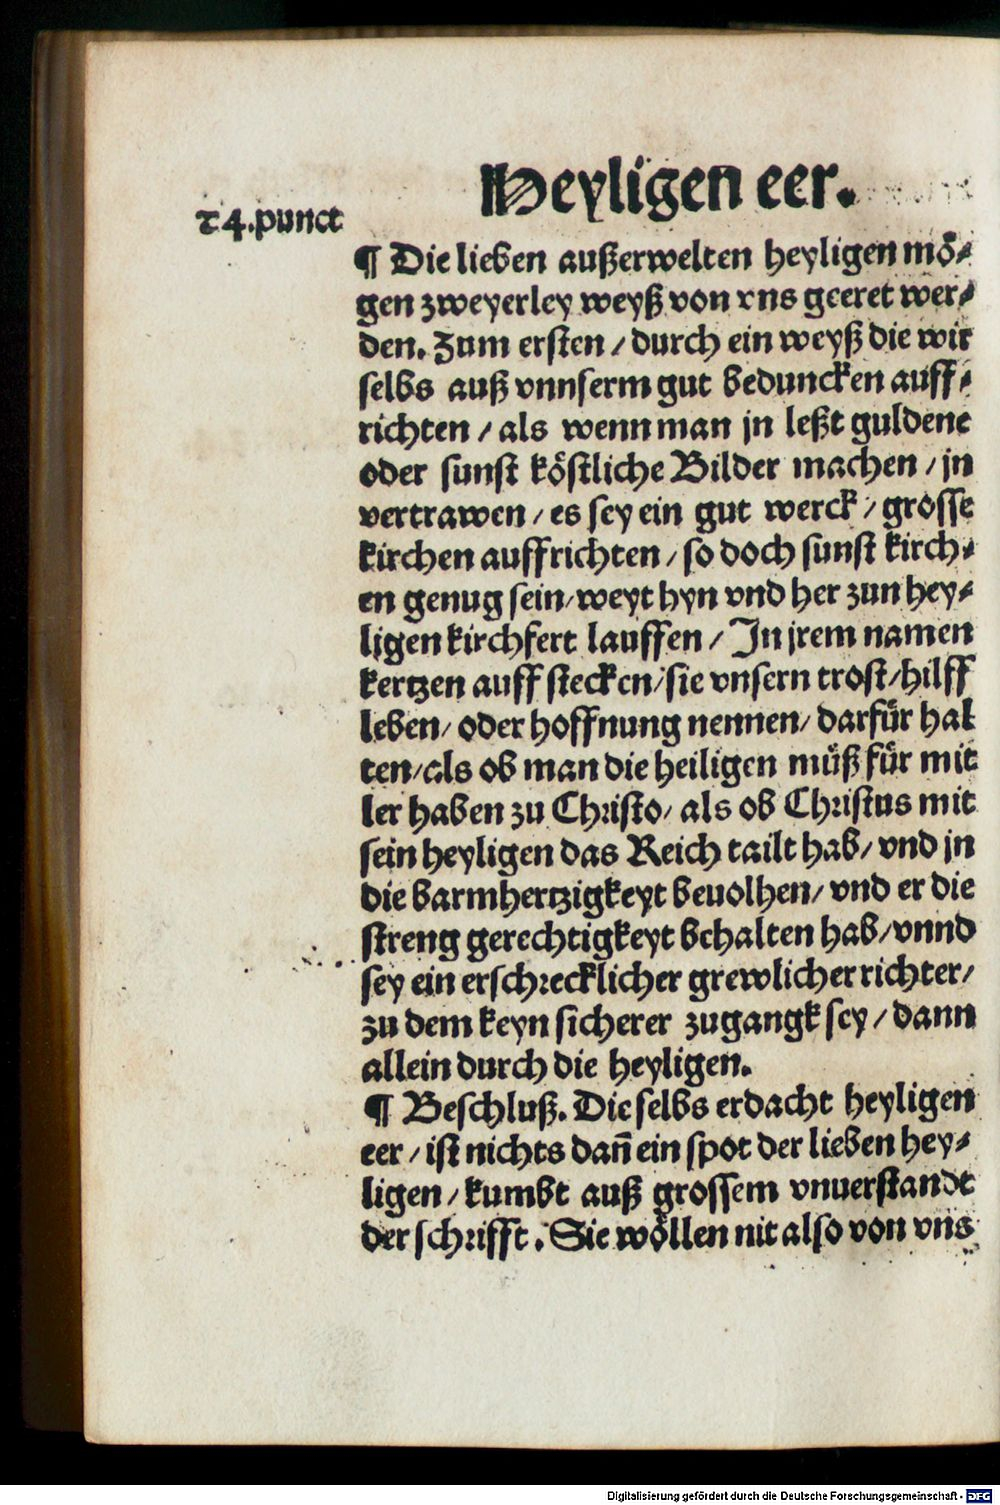 Heyligen eer.
24.punct
¶ Die lieben außerwelten heyligen mö⸗
gen zweyerley weyß von vns geeret wer⸗
den. Zum ersten / durch ein weyß die wir
selbs auß vnnserm gut beduncken auff⸗
richten / als wenn man jn leßt guldene
oder sunst köstliche Bilder machen / jn
vertrawen / es sey ein gut werck / grosse
kirchen auffrichten / so doch sunst kirch⸗
en genug sein / weyt hyn vnd her zun hey⸗
ligen kirchfert lauffen / In jrem namen
kertzen auff stecken / sie vnsern trost / hilff
leben / oder hoffnung nennen / darfür hal
ten / als ob man die heiligen müß für mit
ler haben zu Christo / als ob Christus mit
sein heyligen das Reich tailt hab / vnd jn
die barmhertzigkeyt beuolhen / vnd er die
streng gerechtigkeyt behalten hab / vnnd
sey ein erschrecklicher grewlicher richter /
zu dem keyn sicherer zugangk sey / dann
allein durch die heyligen.
¶ Beschluß. Die selbs erdacht heyligen
eer / ist nichts dañ ein spot der lieben hey⸗
ligen / kumbt auß grossem vnuerstandt
der schrifft. Sie wöllen nit also von vns
Digitalisierung gefördert durch die Deutsche Forschungsgemeinschaft - DFG